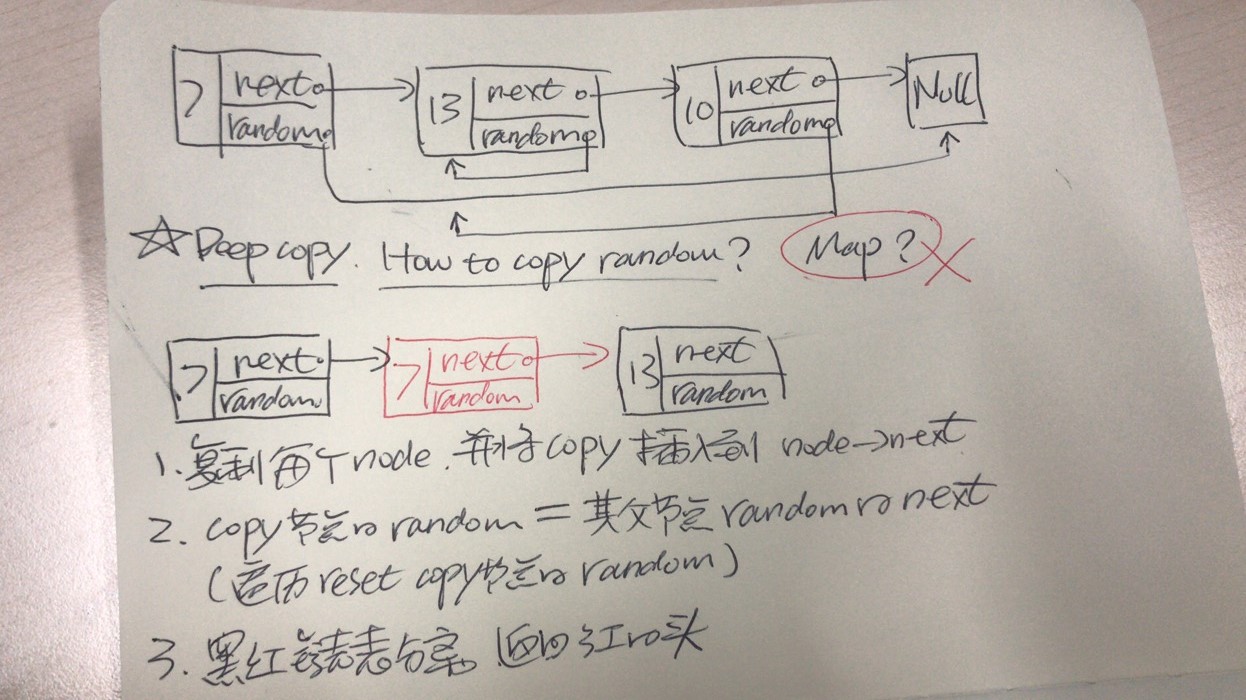 7 next 13 next 10 next Null
random random random
Deep copy. How to copy random? Map?
7 next 7 next 13 next
random random random
1. 复制每个node.并将copy插入到 node→next
2. copy节点的random = 其父节点random的next
(遍历reset copy节点的random)
3. 黑红链表分离 返回红的头